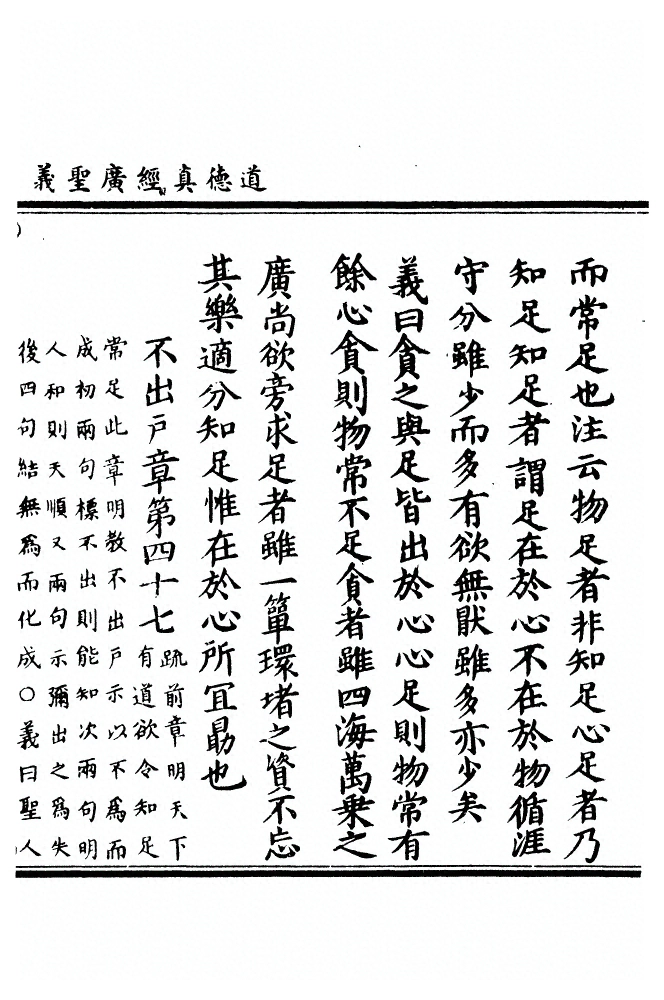 道德真經廣聖義
而常足也注云物足者非知足心足者乃
知足知足者謂足在於心不在於物循涯
守分雖少而多有欲無猒雖多亦少矣
義曰貪之與足皆出於心心足則物常有
餘心貪則物常不足貪者雖四海萬乗之
廣尚欲旁求足者雖一簞環堵之資不忘
其樂適分知足惟在於心所冝勗也
不出戶章第四十七
疏前章明天下
有道欲令知足
常足此章明教不出戶示以不為而
成初兩句標不出則能知次兩句明
人和則天順又兩句示彌出之為失
後四句結無為而化成○義曰聖人